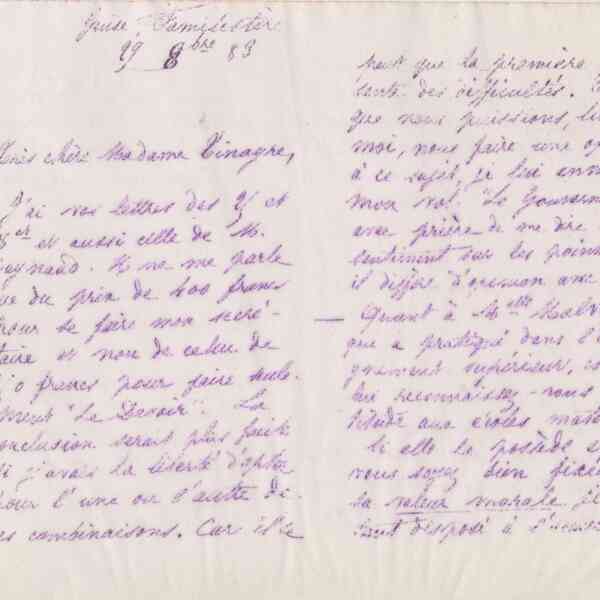 Guise, Familistère
29 8bre 83
chère Madame Tinayre,
J'ai vos lettres des
et aussi celle de M.
Raynaud. Il ne me parle
que du prix de 400 francs
pour se faire mon secré-
taire et non de celui de
francs pour faire seule-
ment "Le Devoir". La
conclusion serait plus facile
si j'avais la liberté d'opter
pour l'une ou l'autre de
ces combinaisons. Car il se
peut que la première
sente des difficultés.
que nous puissions,
moi, nous faire une
à ce sujet, je lui
mon vol. "Le Gouverne
avec prière de me dire
sentiment sur les points
il diffère d'opinion avec
— Quant à Melle
que a pratiqué dans l'
gnement supérieur,
lui reconnaissez-vous
titude aux écoles mat
Si elle la possède
vous soyez bien fixée
sa valeur morale je
tout disposé à